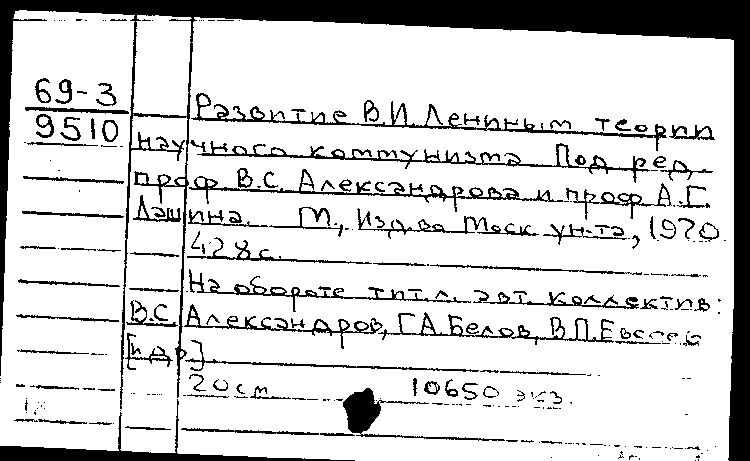 69-3
9510
Развитие В.И. Лениным теории
научного коммунизма Под ред.
проф В.С. Александрова и проф А.Г.
Лашина. М., Изд-во Моск ун-та, 1970.
428с.
На обороте тит.л. авт. коллектив:
В.С. Александров, Г.А. Белов, В.П. Евсеев
[и др].
20см 10650 экз.